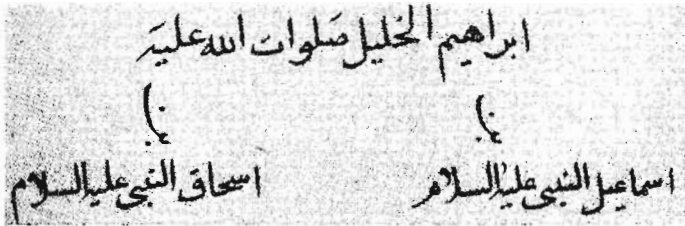 ابراهيم الخليل صلوات الله عليه
بن بن
اسماعيل النبي عليه السلام اسحاق النبي عليه السلام